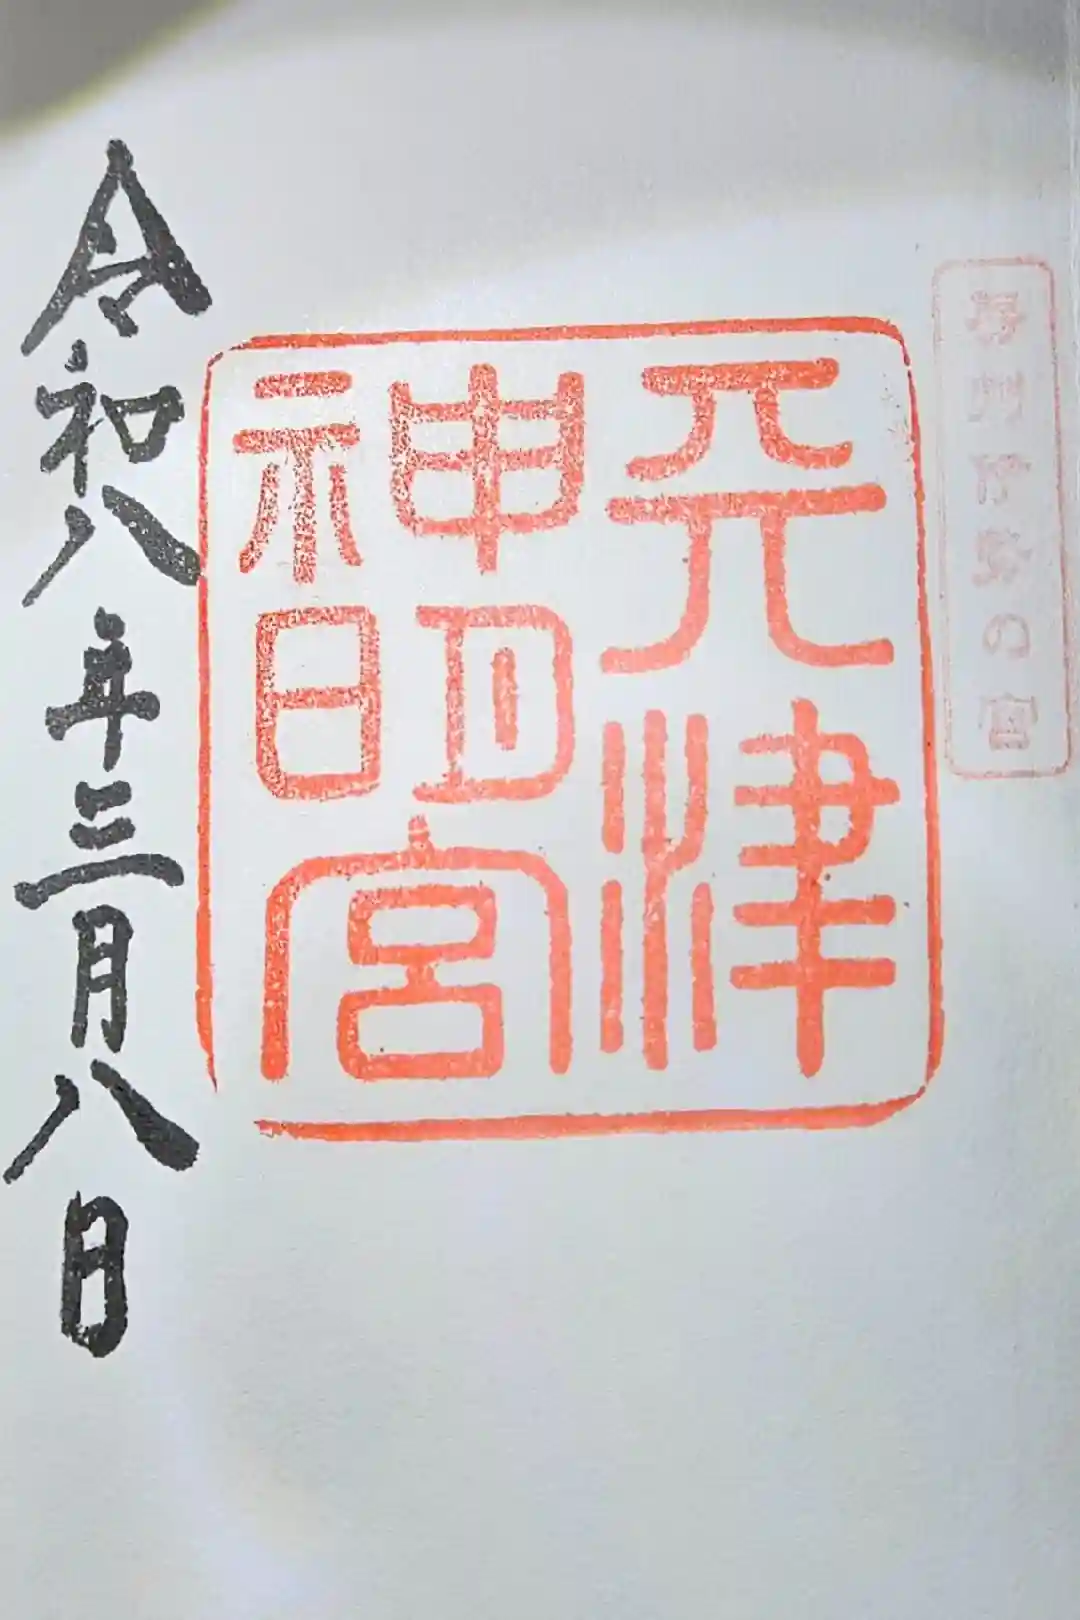 房州伊勢の宮
天津
神明宮
令和八年三月八日